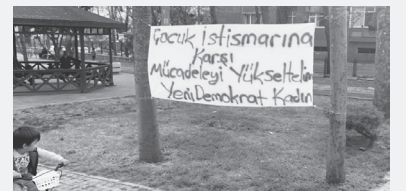 Çocuk İstismarına
Karşı
Mücadeleyi Yükseltelim
Yeni Demokrat Kadın